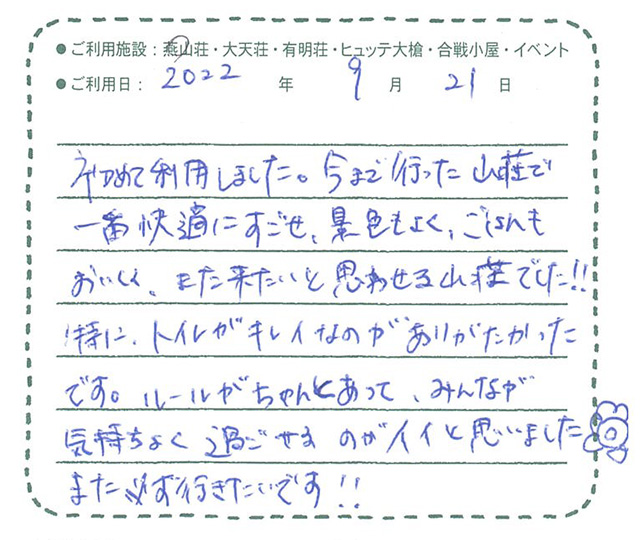 ●ご利用施設：燕山荘・大天荘・有明荘・ヒュッテ大槍・合戦小屋・イベント
●ご利用日：2022年9月21日
初めて利用しました。今まで行った山荘で
一番快適にすごせ、景色もよく、ごはんも
おいしく、また来たいと思わせる山荘でした!!
特に、トイレがキレイなのがありがたかった
です。ルールがちゃんとあって、みんなが
気持ちよく過ごせるのがイイと思いました
また必ず行きたいです!!